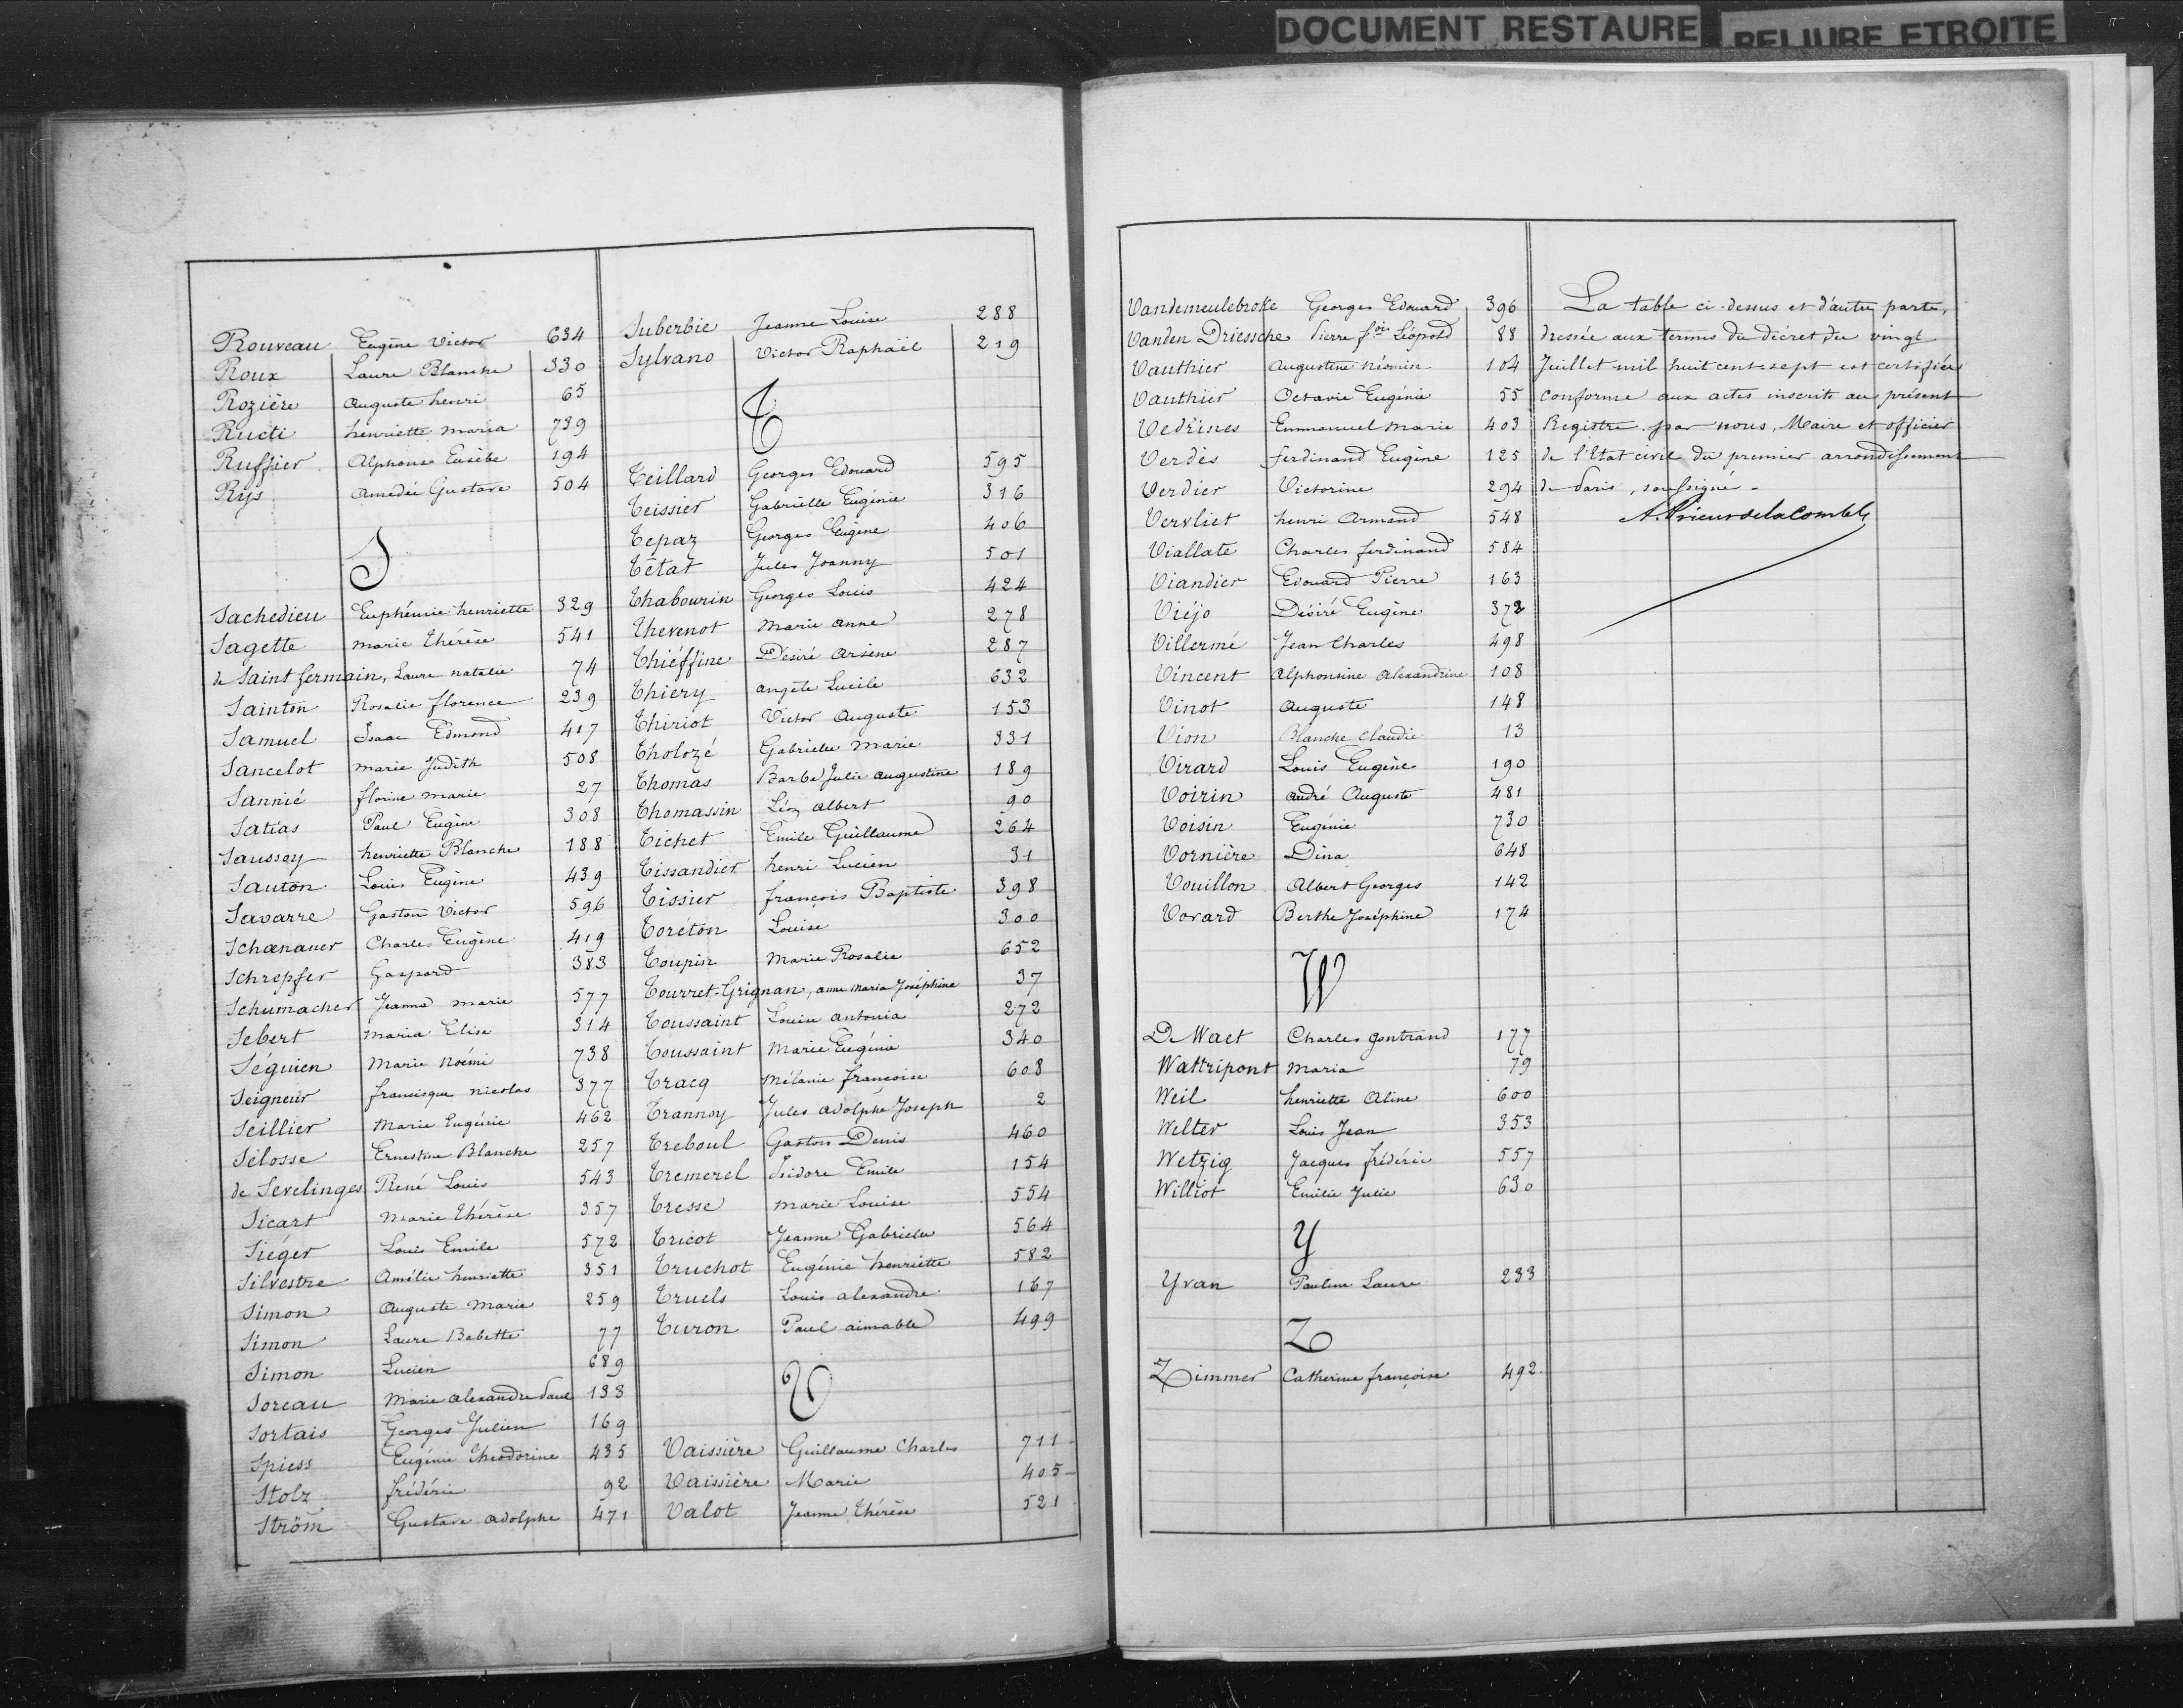 DOCUMENT RESTAURE
RELIURE ETROITE
Rouveau Eugène Victor 634
Roux Laure Blanche 330
Rozière Auguste henri 65
Ructi henriette maria 739
Ruffier Alphonse Eusèbe 194
Rys Amédée Gustave 504
S
Sachedieu Euphémie henriette 329
Sagette marie thérèse 541
de Saint germain, Laure natalie 74
Sainton Rosalie florence 239
Samuel Isaac Edmond 417
Sancelot marie Judith 508
Sannié florine marie 27
Satias Paul Eugène 308
Saussay henriette Blanche 188
Sauton Louis Eugène 439
Savarre Gaston Victor 596
Schœnauer Charles Eugène 419
Schrepfer Gaspard 383
Schumacher Jeanne marie 577
Sebert maria Elise 314
Séguien Marie noémi 738
Seigneur francisque nicolas 377
Seillier Marie Eugénie 462
Sélosse Ernestine Blanche 257
de Sevelinges René Louis 543
Sicart marie thérèse 357
Siéger Louis Emile 572
Silvestre Amélie henriette 351
Simon Auguste Marie 259
Simon Laure Babette 77
Simon Lucien 689
Soreau Marie alexandre Paul 133
Sortais Georges Julien 169
Spiess Eugénie théodorine 435
Stolz frédéric 92
Ström Gustave adolphe 471
Suberbie Jeanne Louise 288
Sylvano Victor Raphaël 219
T
Teillard Georges Edouard 595
Teissier Gabrielle Eugénie 316
Tepaz Georges Eugène 406
Tétat Jules Joanny 501
Thabourin Georges Louis 424
Thevenot Marie anne 278
Thiéffine Desiré Arsène 287
Thiery angèle Lucile 632
Thiriot Victor Auguste 153
Tholozé Gabrielle marie 331
Thomas Barbe Julie augustine 189
Thomassin Léon albert 90
Tichet Emile Guillaume 264
Tissandier henri Lucien 31
Tissier françois Baptiste 398
Toréton Louise 300
Toupin Marie Rosalie 652
Tourret-Grignan, anne maria Joséphine 37
Toussaint Louise antonia 272
Toussaint Marie Eugénie 340
Tracq Mélanie françoise 608
Trannoy Jules adolphe Joseph 2
Treboul Gaston Denis 460
Tremerel Isidore Emile 154
Tresse marie Louise 554
Tricot Jeanne Gabrielle 564
Truchot Eugénie henriette 582
Truels Louis alexandre 167
Turon Paul aimable 499
V
Vaissière Guillaume Charles 711
Vaissière Marie 405
Valot Jeanne thérèse 521
Vandemeulebroke Georges Edouard 396
Vanden Driessche Pierre fois Léopold 88
Vauthier Augustine néomise 104
Vauthier Octavie Eugénie 55
Vedrines Emmanuel Marie 403
Verdès ferdinand Eugène 125
Verdier Victorine 294
Vervliet henri Armand 548
Viallate Charles ferdinand 584
Viandier Edouard Pierre 163
Viéjo Désiré Eugène 372
Villermé Jean Charles 498
Vincent Alphonsine alexandrine 108
Vinot Auguste 148
Vion Blanche Claudie 13
Virard Louis Eugène 190
Voirin André Auguste 481
Voisin Eugénie 730
Vornière Dina 648
Vouillon Albert Georges 142
Vovard Berthe Joséphine 174
W
De Waet Charles gontrand 177
Wattripont Maria 79
Weil henriette Aline 600
Welter Louis Jean 353
Wetzig Jacques frédéric 557
Williot Emilie Julie 630
Y
Yvan Pauline Laure 233
Z
Zimmer Catherine françoise 492
La table ci-dessus et d'autre parte,
dressée aux termes du décret du vingt
Juillet mil huit cent sept est certifiée
conforme aux actes inscrits au présent
Registre par nous, Maire et officier
de l'Etat civil du premier arrondissement
de Paris, soussigné -
A. Prieur de la Comble